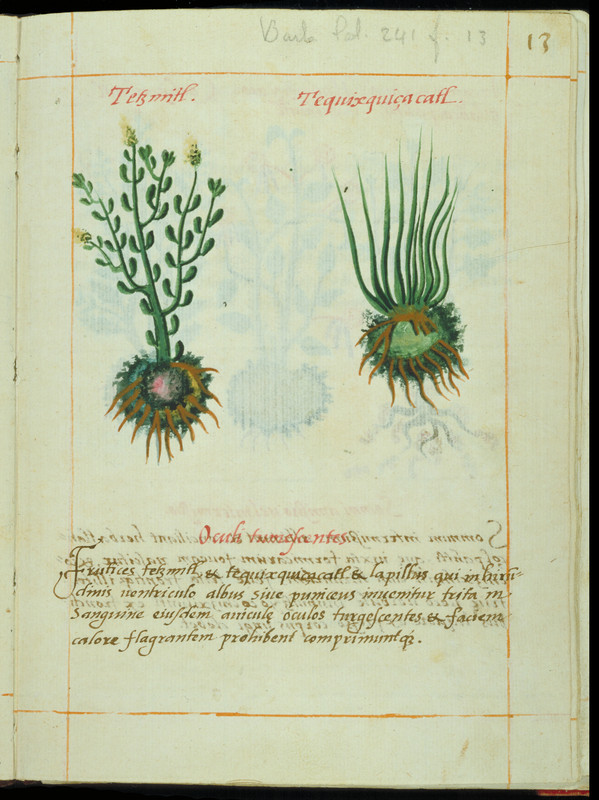 Barb. Lat. 241 f. 13
13
Tetzmitl.
Tequixquiçacatl.
Oculi tumescentes.
Frutices tetzmitl & tequixquiçacatl & lapillus qui in hiru-
dinis uentriculo albus siue puniceus inuenitur trita in
Sanguine eiusdem auiculę oculos turgescentes & faciem
calore flagrantem prohibent comprimuntq;.